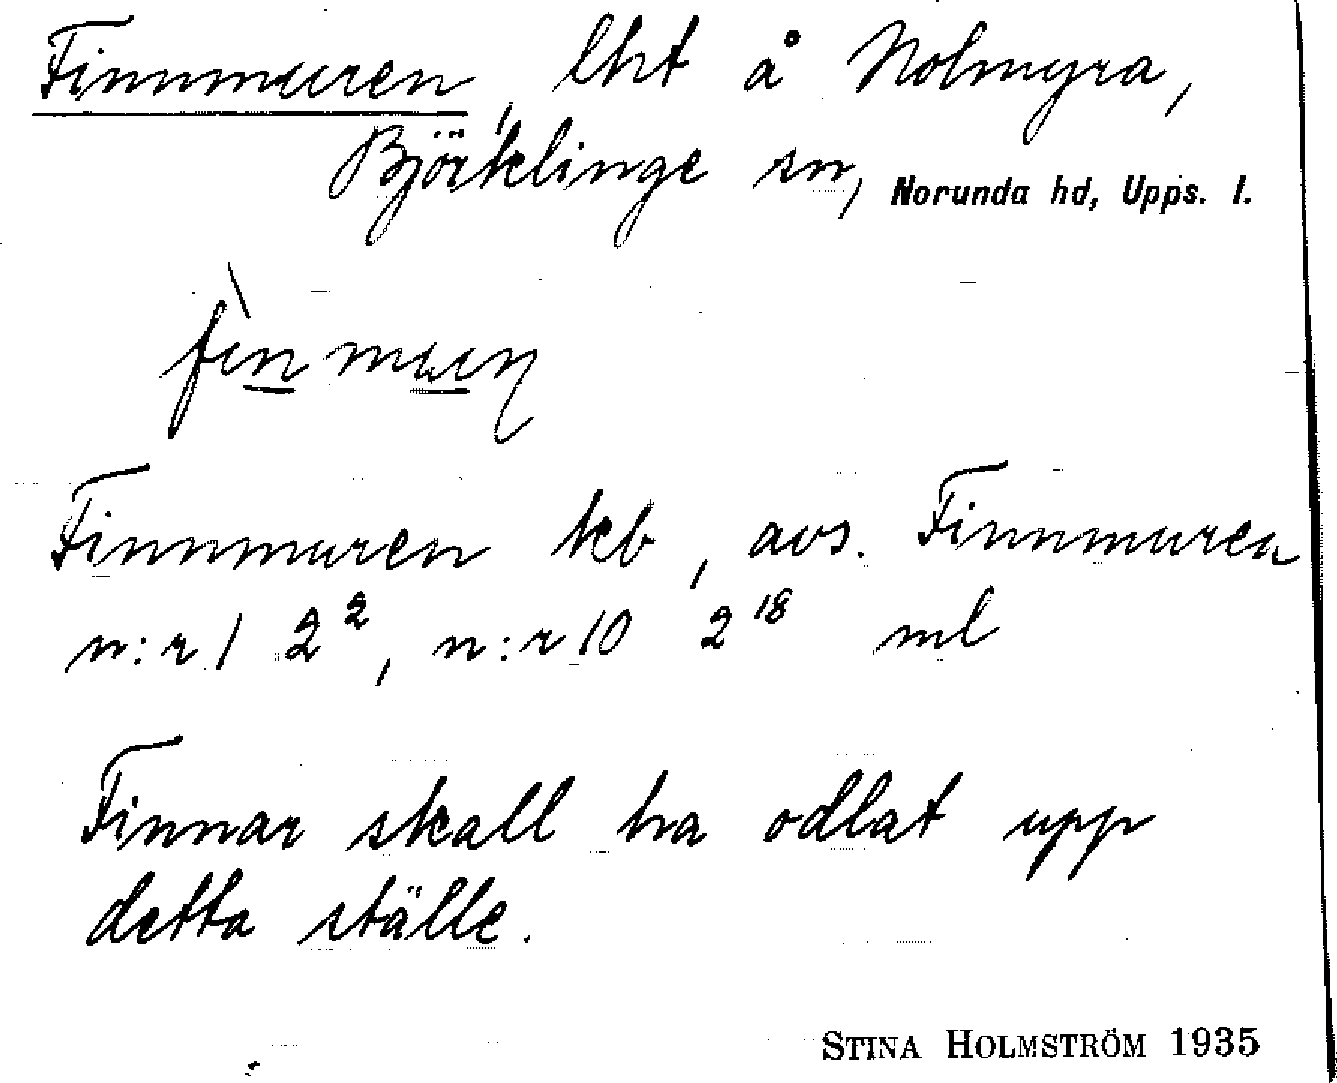 Finnmuren, lht å Nolmyra,
Björklinge sn, Norunda hd, Upps. l.
Finnmuren kb, avs. Finnmuren
n:r 1 2², n:r 10 2¹⁸ ml
Finnar skall ha odlat upp
detta ställe.
STINA HOLMSTRÖM 1935